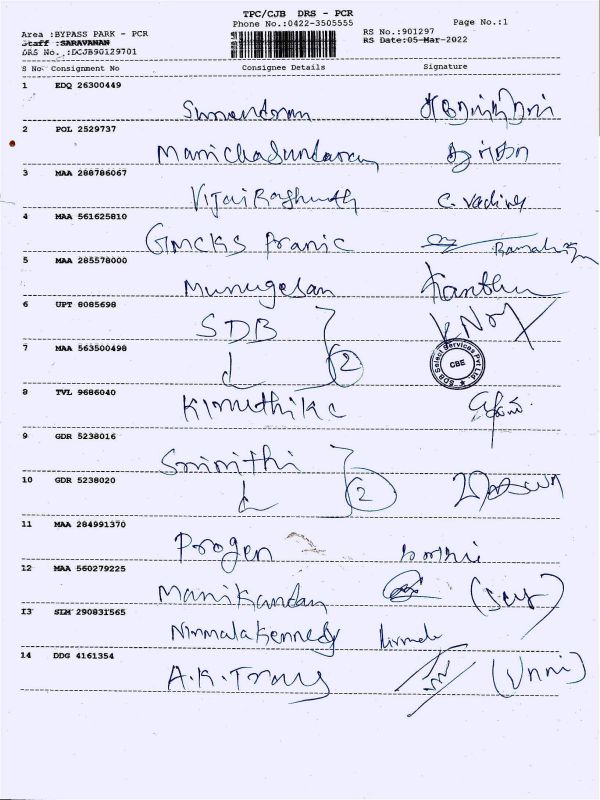 TPC/CJB DRS - PCR
Phone No.:0422-3505555
Page No.:1
Area :BYPASS PARK - PCR
Staff :SARAVANAN
DRS No. :DCJB90129701
RS No.:901297
RS Date:05-Mar-2022
S No Consignment No Consignee Details Signature
1 EDQ 26300449
2 POL 2529737
3 MAA 288786067
Vijai Raghunath
4 MAA 561625810
GMCKS Pranic
5 MAA 285578000
Murugesan
6 UPT 8085698
SDB
7 MAA 563500498
2
SDB Select Services Pvt Ltd.
CBE
8 TVL 9686040
Kiruthika
9 GDR 5238016
Smirithi
10 GDR 5238020
2
11 MAA 284991370
Progen
12 MAA 560279225
Manikandan
13 SLM 290831565
Nirmala Kennedy
14 DDG 4161354
A.K. (Unni)